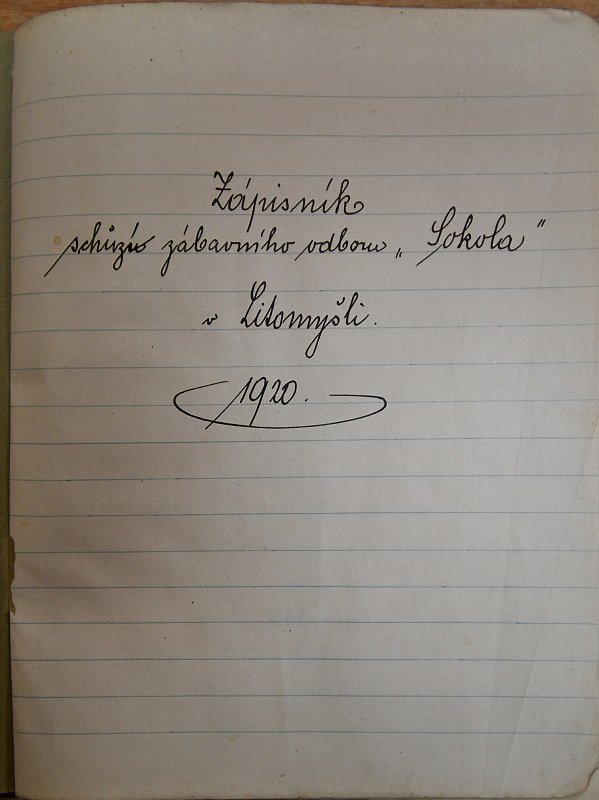 Zápisník
schůzí zábavního odboru „Sokola"
v Litomyšli.
1920.